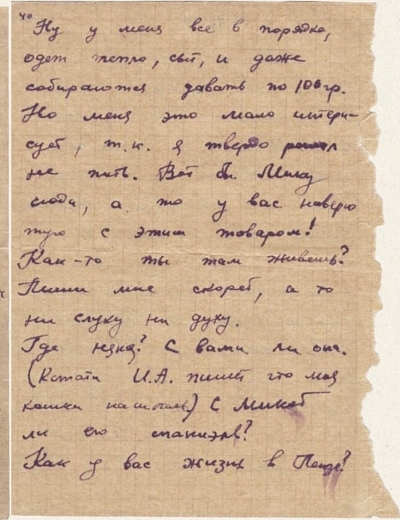 Ну у меня всё в порядке,
одет тепло, сыт, и даже
собираются давать по 100 гр.
Но меня это мало интере-
сует, т.к. я твердо решил
не пить. Вот бы Мишу
сюда, а то у вас наверно
туго с этим товаром!
Как-то ты там живешь?
Пиши мне скорей, а то
ни слуху ни духу.
Где няня? С вами ли она.
(Кстати И.А. пишет что моя
кошка нашлась) С
ли его спаниэль?
Как у вас жизнь в Пензе?